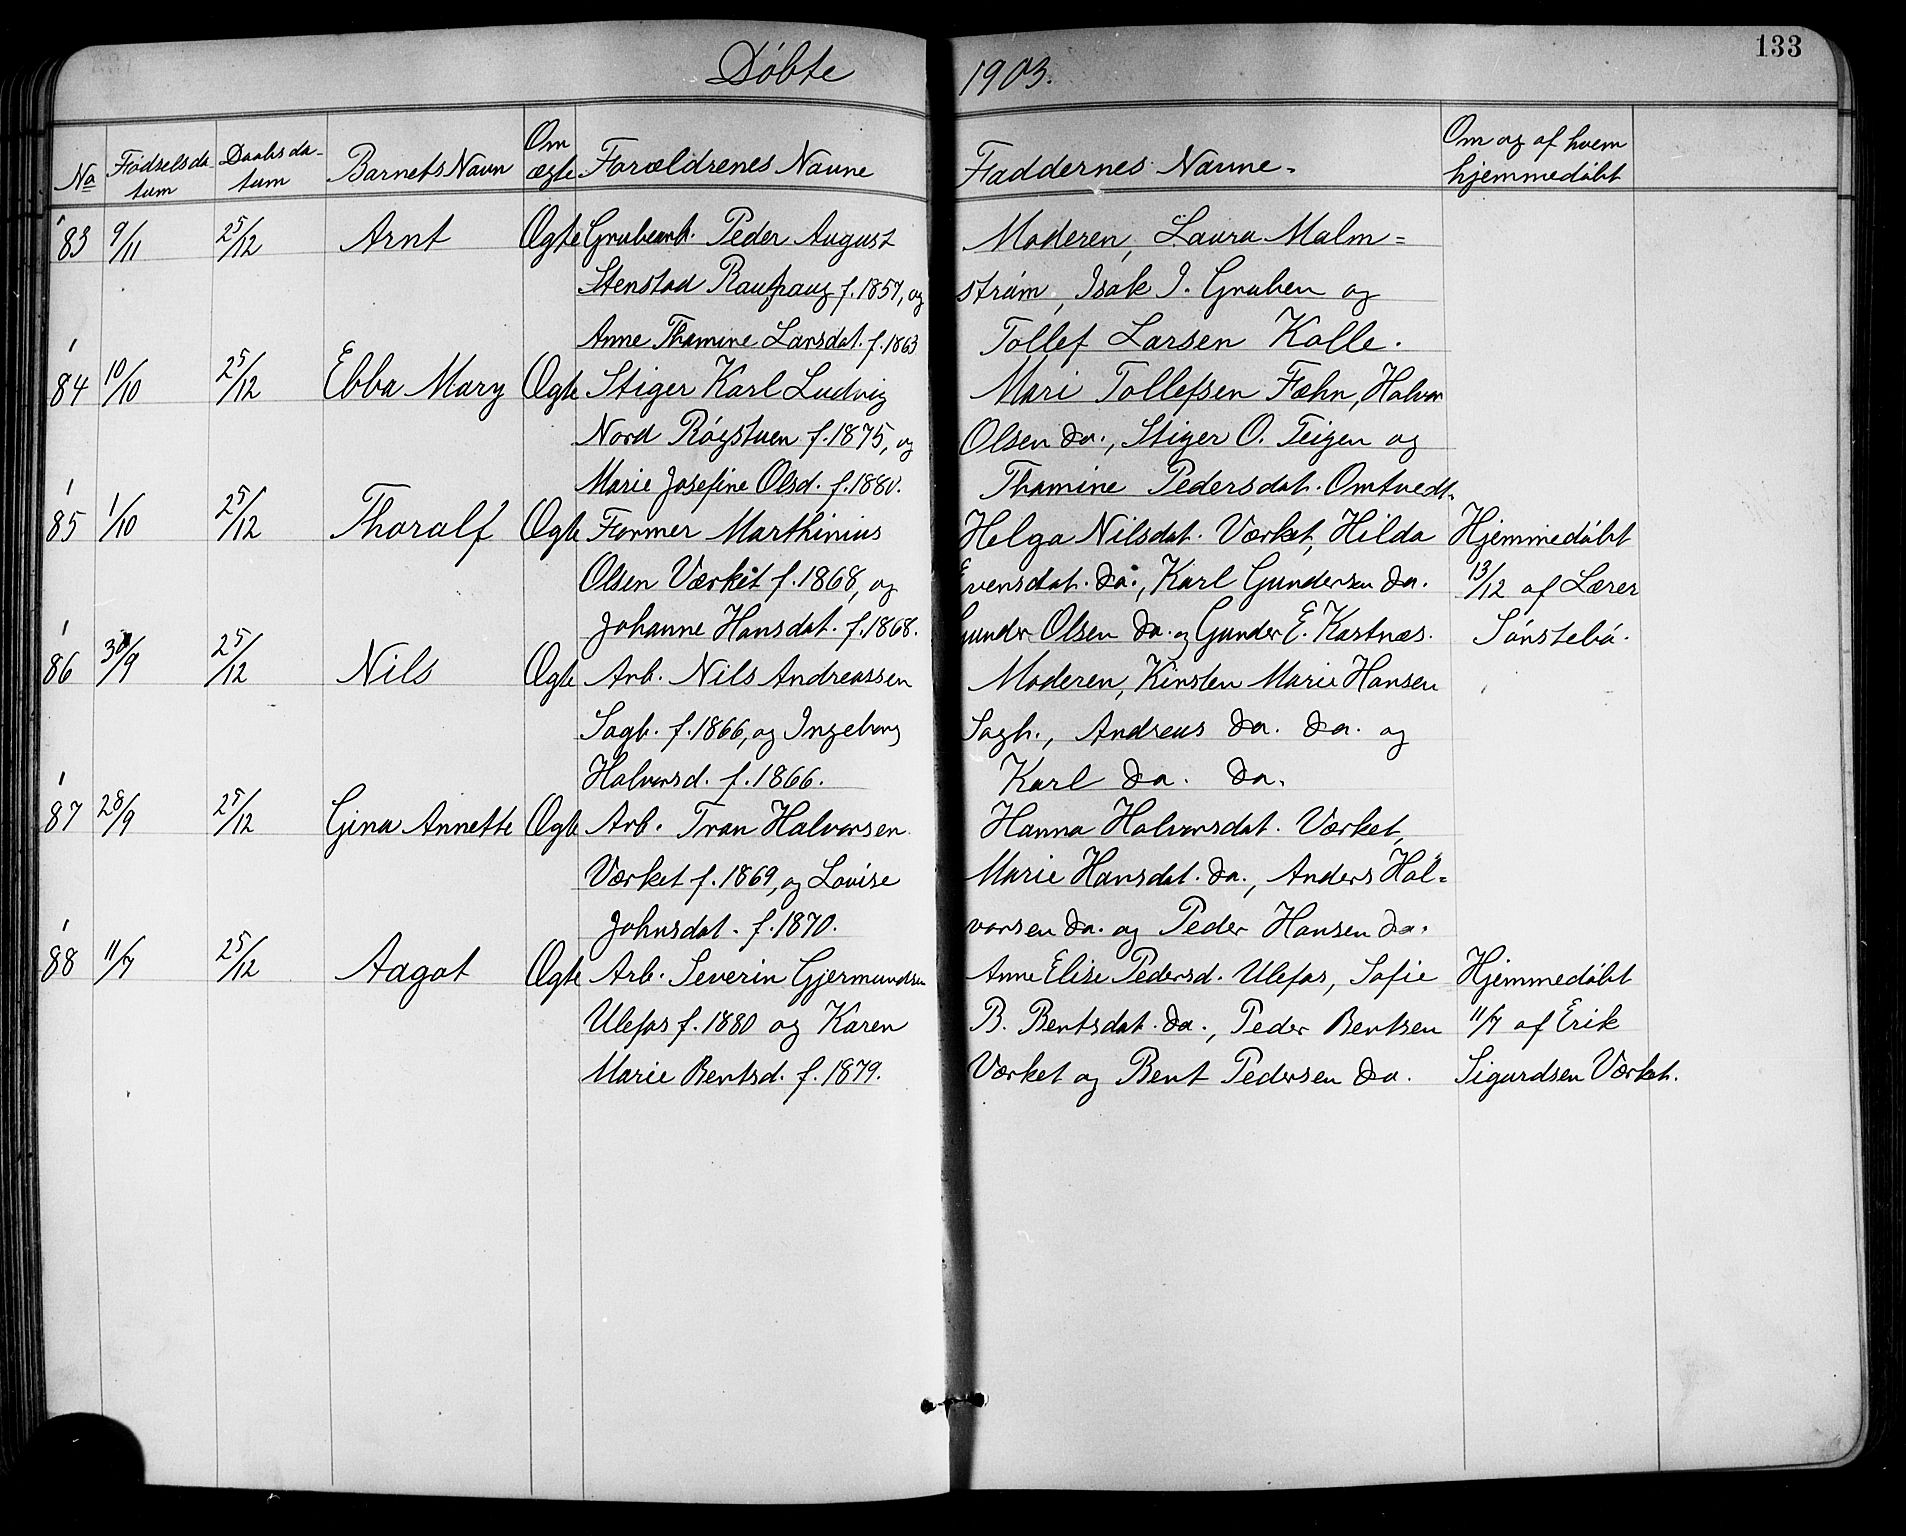 133
Döbte 1903.
No Födselsda- Daabsda- Barnets Navn Om Forældrenes Navne Faddernes Navne. Om og af hvem
tum tum ægte hjemmedöbt
83 9/11 25/12 Arnt Ægte Grubearb. Peder August Moderen, Laura Malm=
Stenstad f. 1857, og ström, Isak I. Gruben og
Anne Thomine Larsdat. f. 1863 Tollef Larsen Kolle.
84 10/10 25/12 Ebba Mary Ægte Stiger Karl Ludvig Mari Tollefsen Fæhn, Halvor
Nord Rögstuen f. 1875, og Olsen do., Stiger O. Teigen og
Marie Josefine Olsd. f. 1880. Thomine Pedersdat. Omtvedt.
85 1/10 25/12 Thoralf Ægte Former Marthinius Helga Nilsdat. Værket, Hilda Hjemmedöbt
Olsen Værket f. 1868, og Evensdat. do., Karl Gundersen do. 13/12 af Lærer
Johanne Hansdat. f. 1868. Gunder Olsen do. og Gunder E. Kastnæs. Sönstebö.
86 30/9 25/12 Nils Ægte Arb. Nils Andreassen Moderen, Kirsten Marie Hansen
Sagb. f. 1866, og Ingeborg Sagb., Andreas do. do. og
Halvorsd. f. 1866. Karl do. do.
87 28/9 25/12 Gina Annette Ægte Arb. Tran Halvorsen Hanna Halvorsdat. Værket,
Værket f. 1869, og Lovise Marie Hansdat. do., Anders Hal=
Johnsdat. f. 1870. vorsen do. og Peder Hansen do.
88 11/7 25/12 Aagot Ægte Arb. Severin Gjermundsen Anne Elise Pedersd. Ulefos, Sofie Hjemmedöbt
Ulefos f. 1880 og Karen B. Bentsdat. do., Peder Bentsen 11/7 af Erik
Marie Bentsd. f. 1879. Værket og Bent Pedersen do. Sigurdsen Værket.